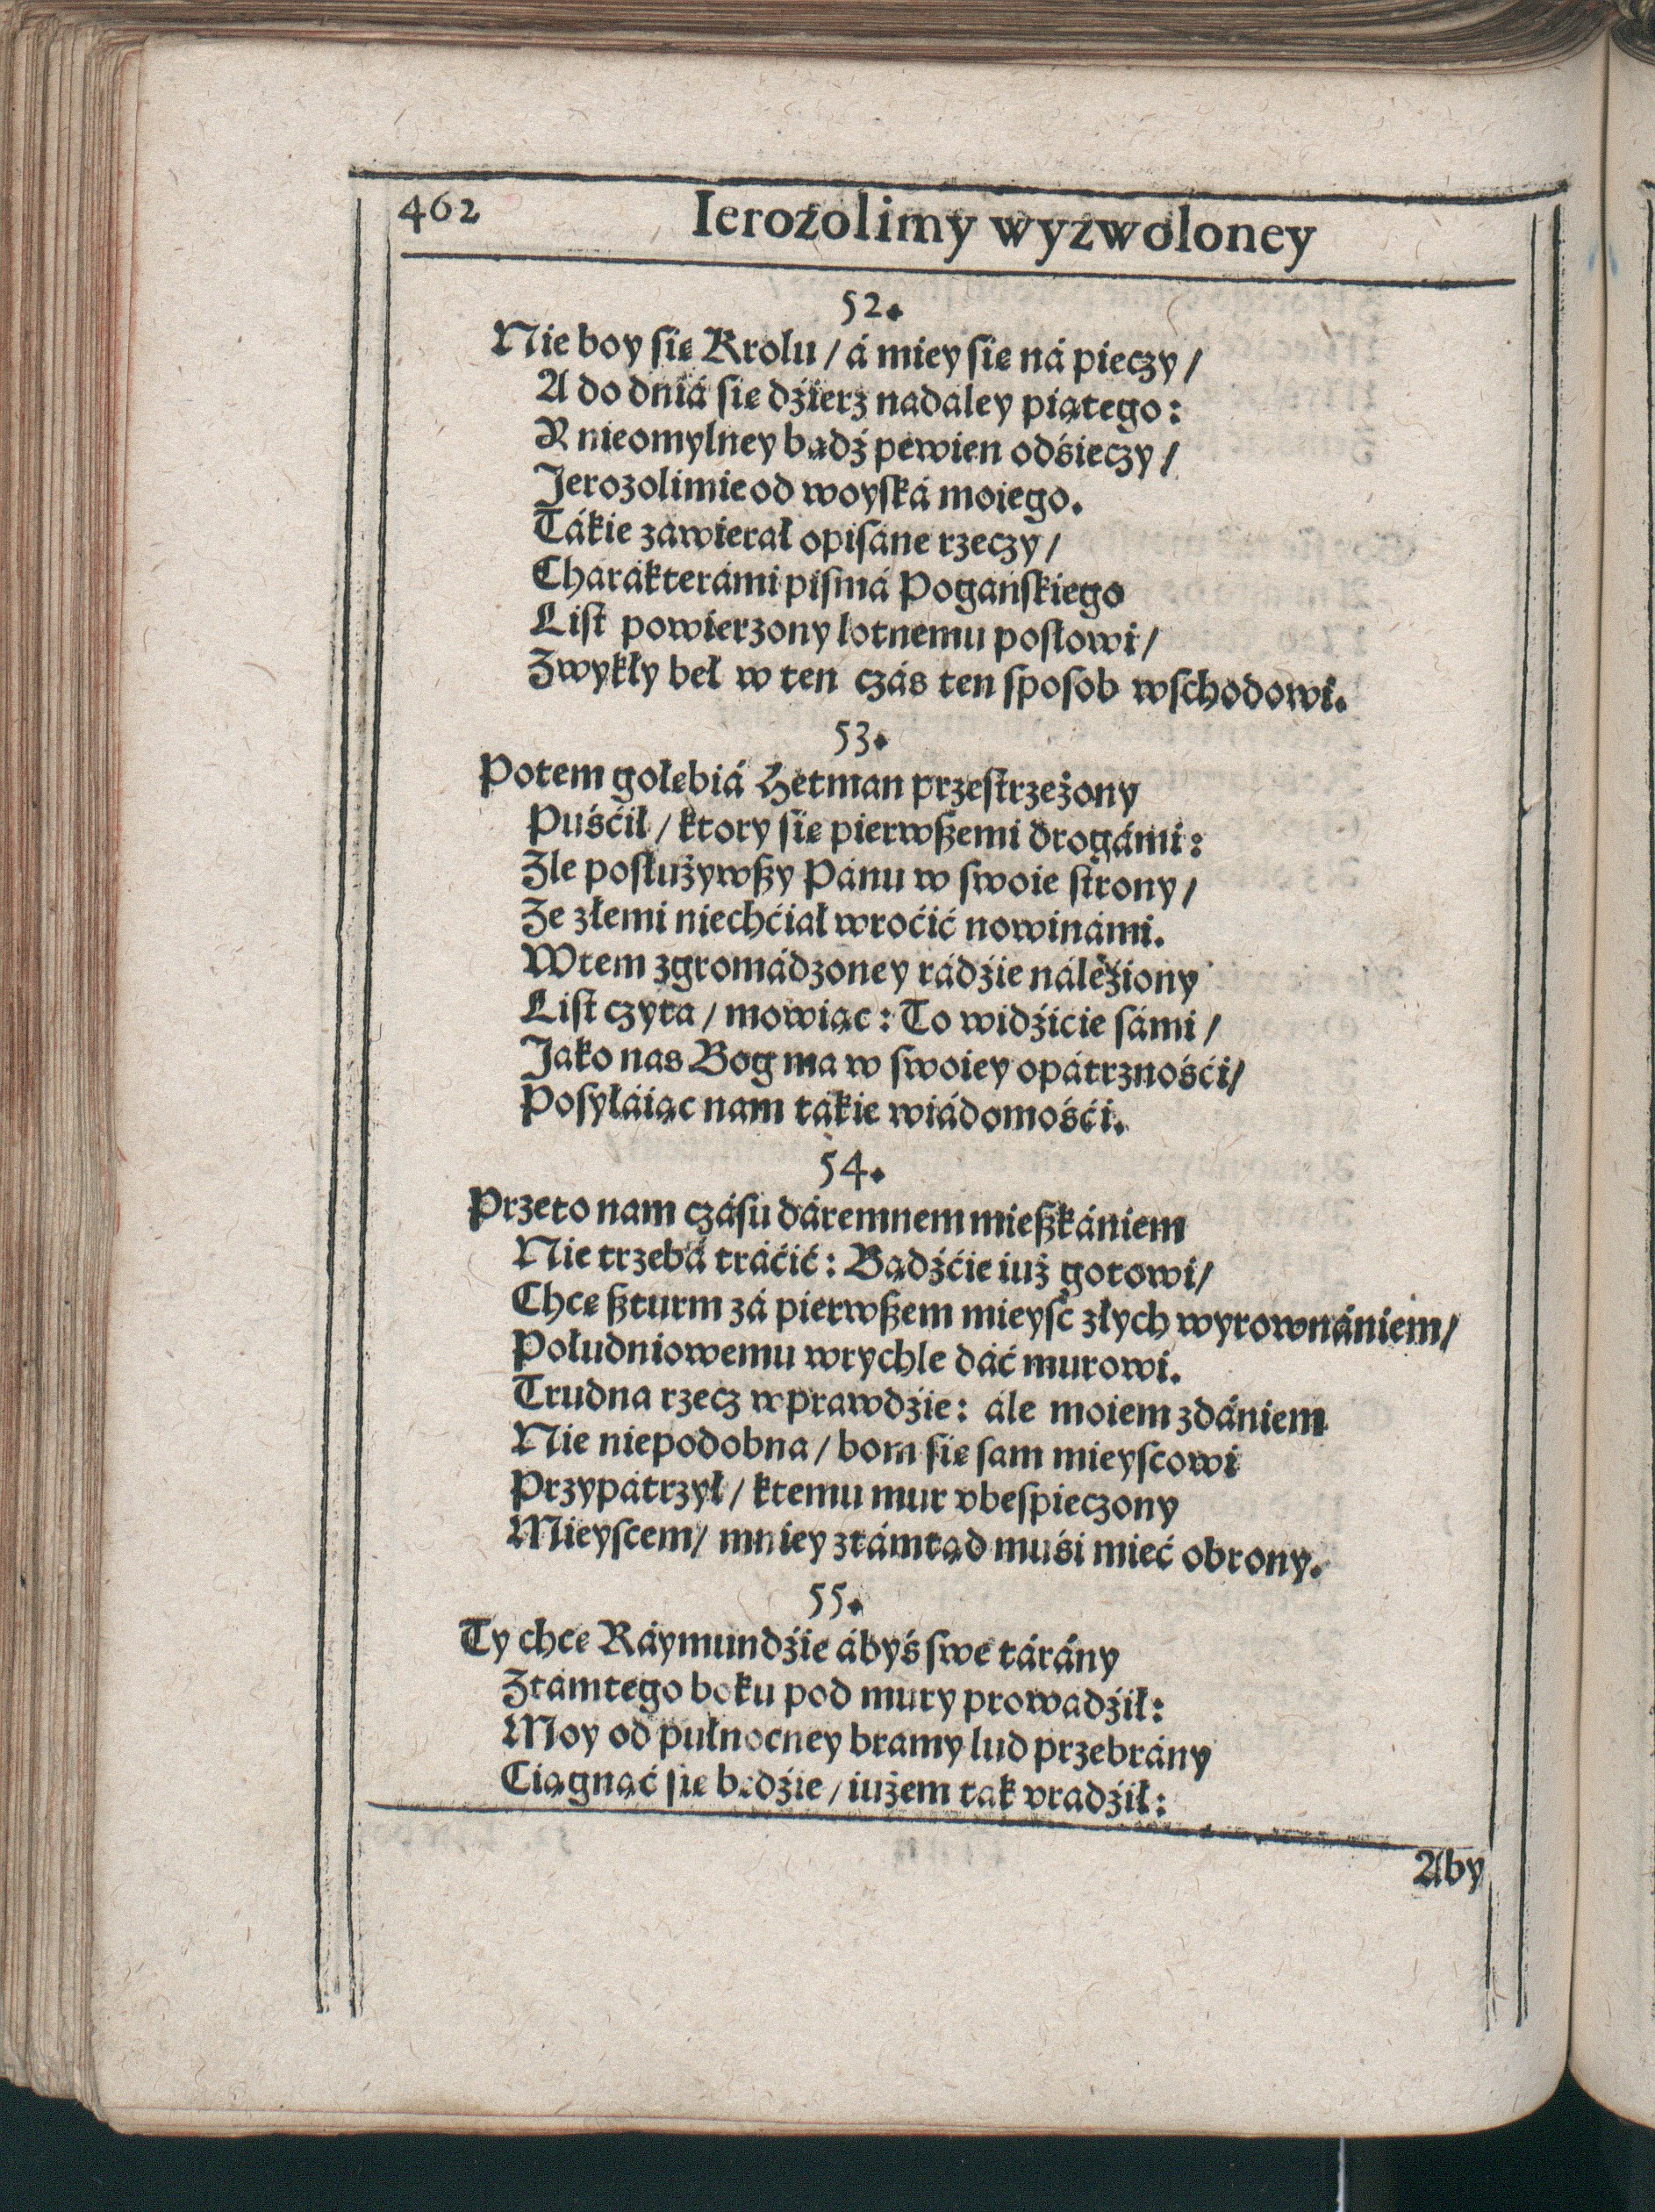 462 Ierozolimy wyzwoloney
52.
Nie boy się Krolu / á miey się ná pieczy /
A do dniá się dźierz nadaley piątego:
R nieomylney bądź pewien odśieczy /
Jerozolimie od woyſká moiego.
Tákie záwierał opiſáne rzeczy /
Charákterámi piſmá Pogáńſkiego
Liſt powierzony lotnemu poſłowi /
Zwykły beł w ten czás ten ſpoſob wſchodowi.
53.
Potem gołębiá Hetman przeſtrzeżony
Puśćił / ktory się pierwßemi drogámi:
Zle poſłużywßy Pánu w ſwoie ſtrony /
Ze złemi niechćiał wroćić nowinámi.
Wtem zgromádzoney rádźie náleźiony
Liſt czyta / mowiąc: To widźicie ſámi /
Jako nas Bog ma w ſwoiey opátrznośći /
Poſyłáiąc nam tákie wiádomośći.
54.
Przeto nam czáſu dáremnem mießkániem
Nie trzebá tráćić: Bądźćie iuż gotowi /
Chcę ßturm zá pierwßem mieyſc złych wyrownániem /
Południowemu wrychle dáć murowi.
Trudna rzecz wprawdźie: ále moiem zdániem
Nie niepodobna / bom się ſam mieyſcowi
Przypátrzył / ktemu mur vbeſpieczony
Mieyſcem / mniey ztámtąd muśi mieć obrony.
55.
Ty chcę Ráymundźie ábyś ſwe tárány
Ztámtego boku pod mury prowadźił:
Moy od pułnocney bramy lud przebrány
Ciągnąć się będźie / iużem tak vradźił:
Aby